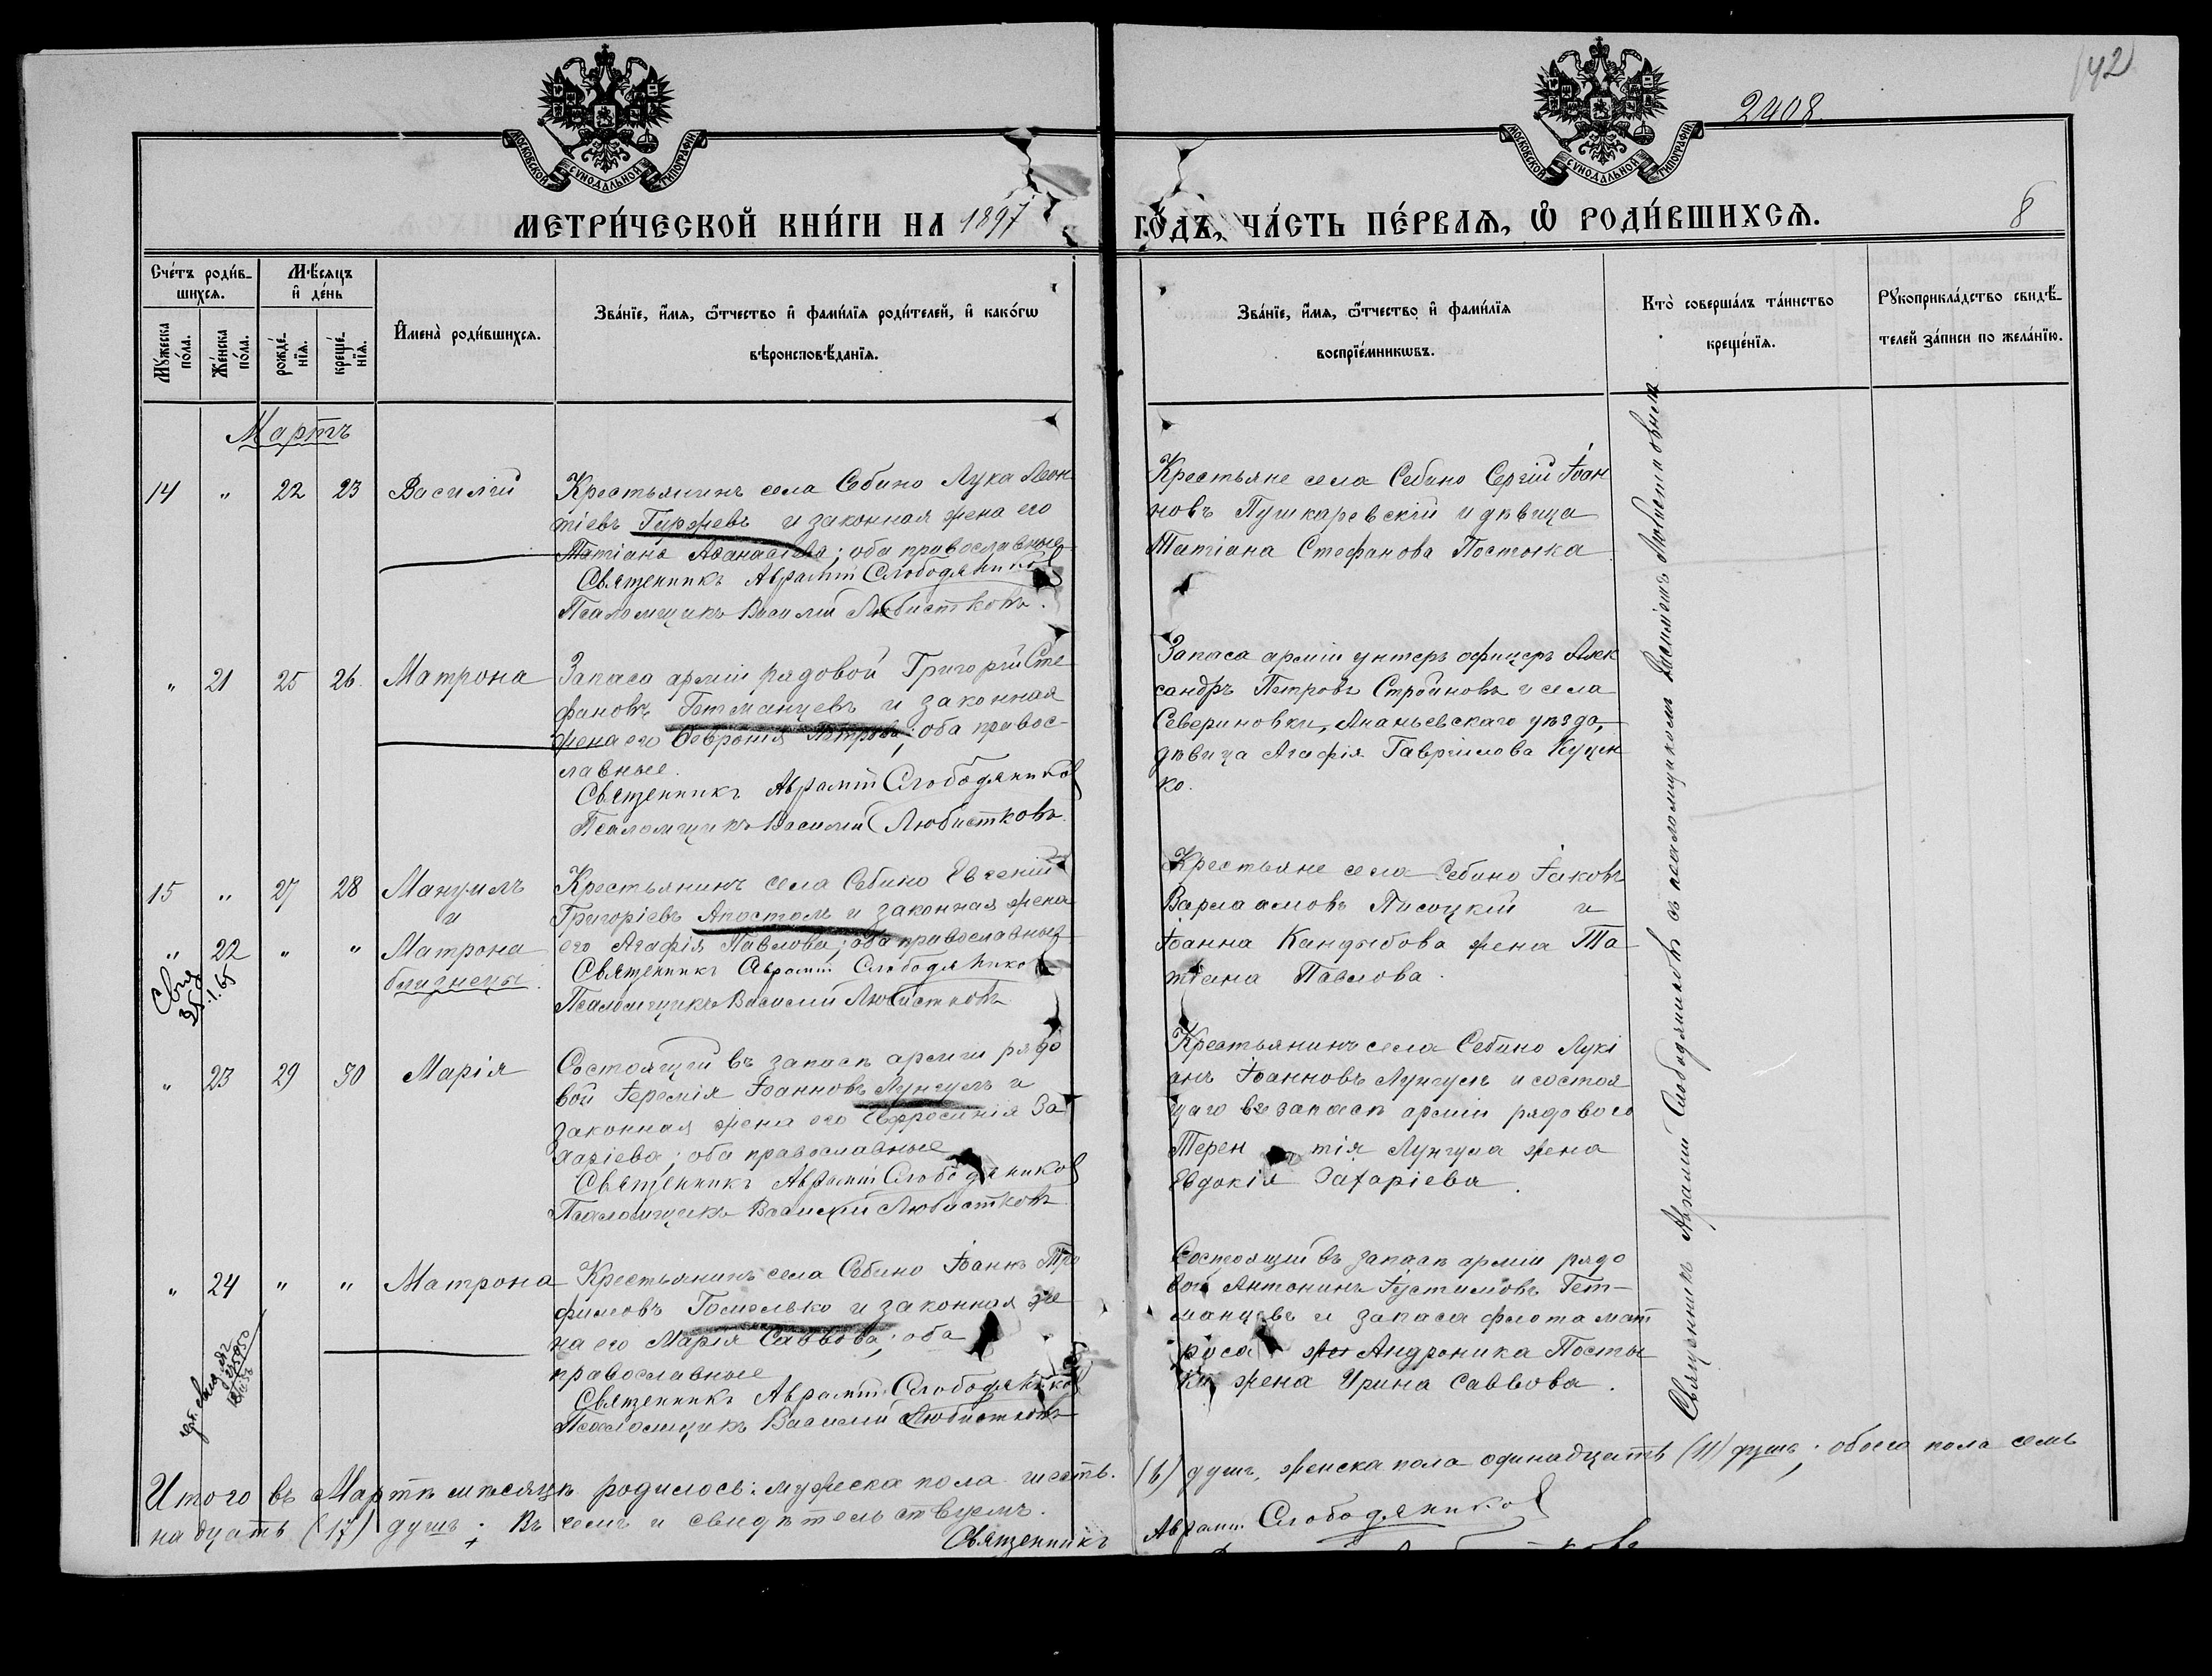 142
2408
8
МОСКОВСКОЙ СѴНОДАЛЬНОЙ ТИПОГРАФІИ
МОСКОВСКОЙ СѴНОДАЛЬНОЙ ТИПОГРАФІИ
МЕТРИ́ЧЕСКОЙ КНИ́ГИ НА 1897 ГО́ДЪ, ЧА́СТЬ ПЕ́РВАѦ, Ѡ҆ РОДИ́ВШИХСѦ.
Сче́тъ роди́в-
шихсѧ.
Мꙋ́жеска
по́ла.
Же́нска
по́ла.
Мѣ́сѧцъ
и҆ де́нь
рожде́-
нїѧ.
креще́-
нїѧ.
И҆мена̀ роди́вшихсѧ.
Зва́нїе, и҆́мѧ, ѻ҆́тчество и҆ фами́лїѧ роди́телей, и҆ како́гѡ
вѣроисповѣ́данїѧ.
Зва́нїе, и҆́мѧ, ѻ҆́тчество и҆ фами́лїѧ
воспрїе́мникѡвъ.
Кто̀ соверша́лъ та́инство
креще́нїѧ.
Рꙋкоприкла́дство свидѣ́-
телей за́писи по жела́нїю.
Мартъ
14 " 22 23 Василій
Крестьянинъ села Себино Лука Леон
тіевъ Гиржевъ и законная жена его
Татіана Аѳанасіева; оба православные
Священникъ Аврамій Слободяников
Псаломщикъ Василій Любистковъ.
Крестьяне села Себино Сергій Іоан
новъ Пушкаревскій и дѣвица
Татіана Стефанова Постолка
" 21 25 26 Матрона
Запаса арміи рядовой Григорій Сте
фановъ Гетманцевъ и законная
жена его Февронія Петрова; оба правос-
лавные.
Священникъ Аврамій Слободяников
Псаломщикъ Василій Любистковъ.
Запаса арміи унтеръ офицеръ Алек
сандръ Петровъ Строиновъ и села
Севериновки, Ананьевскаго уѣзда,
дѣвица Агафія Гавріилова Куцен
ко.
15 " 27 28 Мануилъ
и
" 22 " " Матрона
близнецы.
Крестьянинъ села Себино Евгеній
Григоріевъ Апостолъ и законная жена
его Агафія Павлова; оба православные
Священникъ Аврамій Слободяников
Псаломщикъ Василій Любистковъ
Крестьяне села Себино Іаковъ
Варлаамовъ Писоцкій и
Іоанна Кандыбова жена Та
тіана Павлова.
25.1.65
" 23 29 30 Марія
Состоящій въ запасѣ арміи рядо
вой Іеремія Іоанновъ Лунгулъ и
законная жена его Евфросинія За
харіева; оба православные
Священникъ Аврамій Слободяников
Псаломщикъ Василій Любистковъ
Крестьянинъ села Себино Лукі
анъ Іоанновъ Лунгулъ и состоя
щаго въ запасѣ арміи рядового
Терен тія Лунгула жена
Евдокія Захаріева.
" 24 " " Матрона
Крестьянинъ села Себино Іоаннъ Тро
фимовъ Гомолько и законная же
на его Марія Саввова; оба
православные
Священникъ Аврамій Слободяников
Псаломщикъ Василій Любистковъ
Состоящій въ запасѣ арміи рядо
вой Антонинъ Іустимовъ Гет-
манцевъ и запаса флота мат
роса Андроника Посты
ки жена Ирина Саввова.
Священникъ Аврамій Слободяниковъ съ псаломщикомъ Василіемъ Любистковымъ
Итого въ Мартѣ мѣсяцѣ родилось: мужеска пола шесть. (6) душъ, женска пола одинадцать (11) душъ; обоего пола семь
надцать (17) душъ; Въ чемъ и свидѣтельствуемъ.
Священникъ Аврамій Слободяников